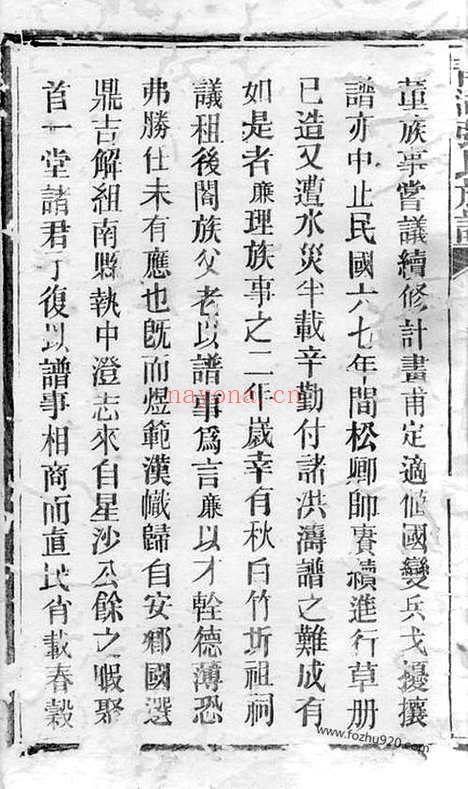 董族事嘗議續修計畫甫定適値國變兵戈擾攘
譜亦中止民國六七年間松卿師賡續進行草册
已造又遭水災半載辛勤付諸洪濤譜之難成有
如是者廉理族事之二年歲幸有秋白竹圻祖祠
議租後閤族父老以譜事爲言廉以才輇德薄恐
弗勝仕未有應也既而煜範漢幟歸自安鄉國選
鼎吉解組南縣執中澄志來自星沙公餘之暇聚
首一堂諸君子復以譜事相商而直民肖載春穀
氏族譜
nayona.cn
www.fozhu920.com